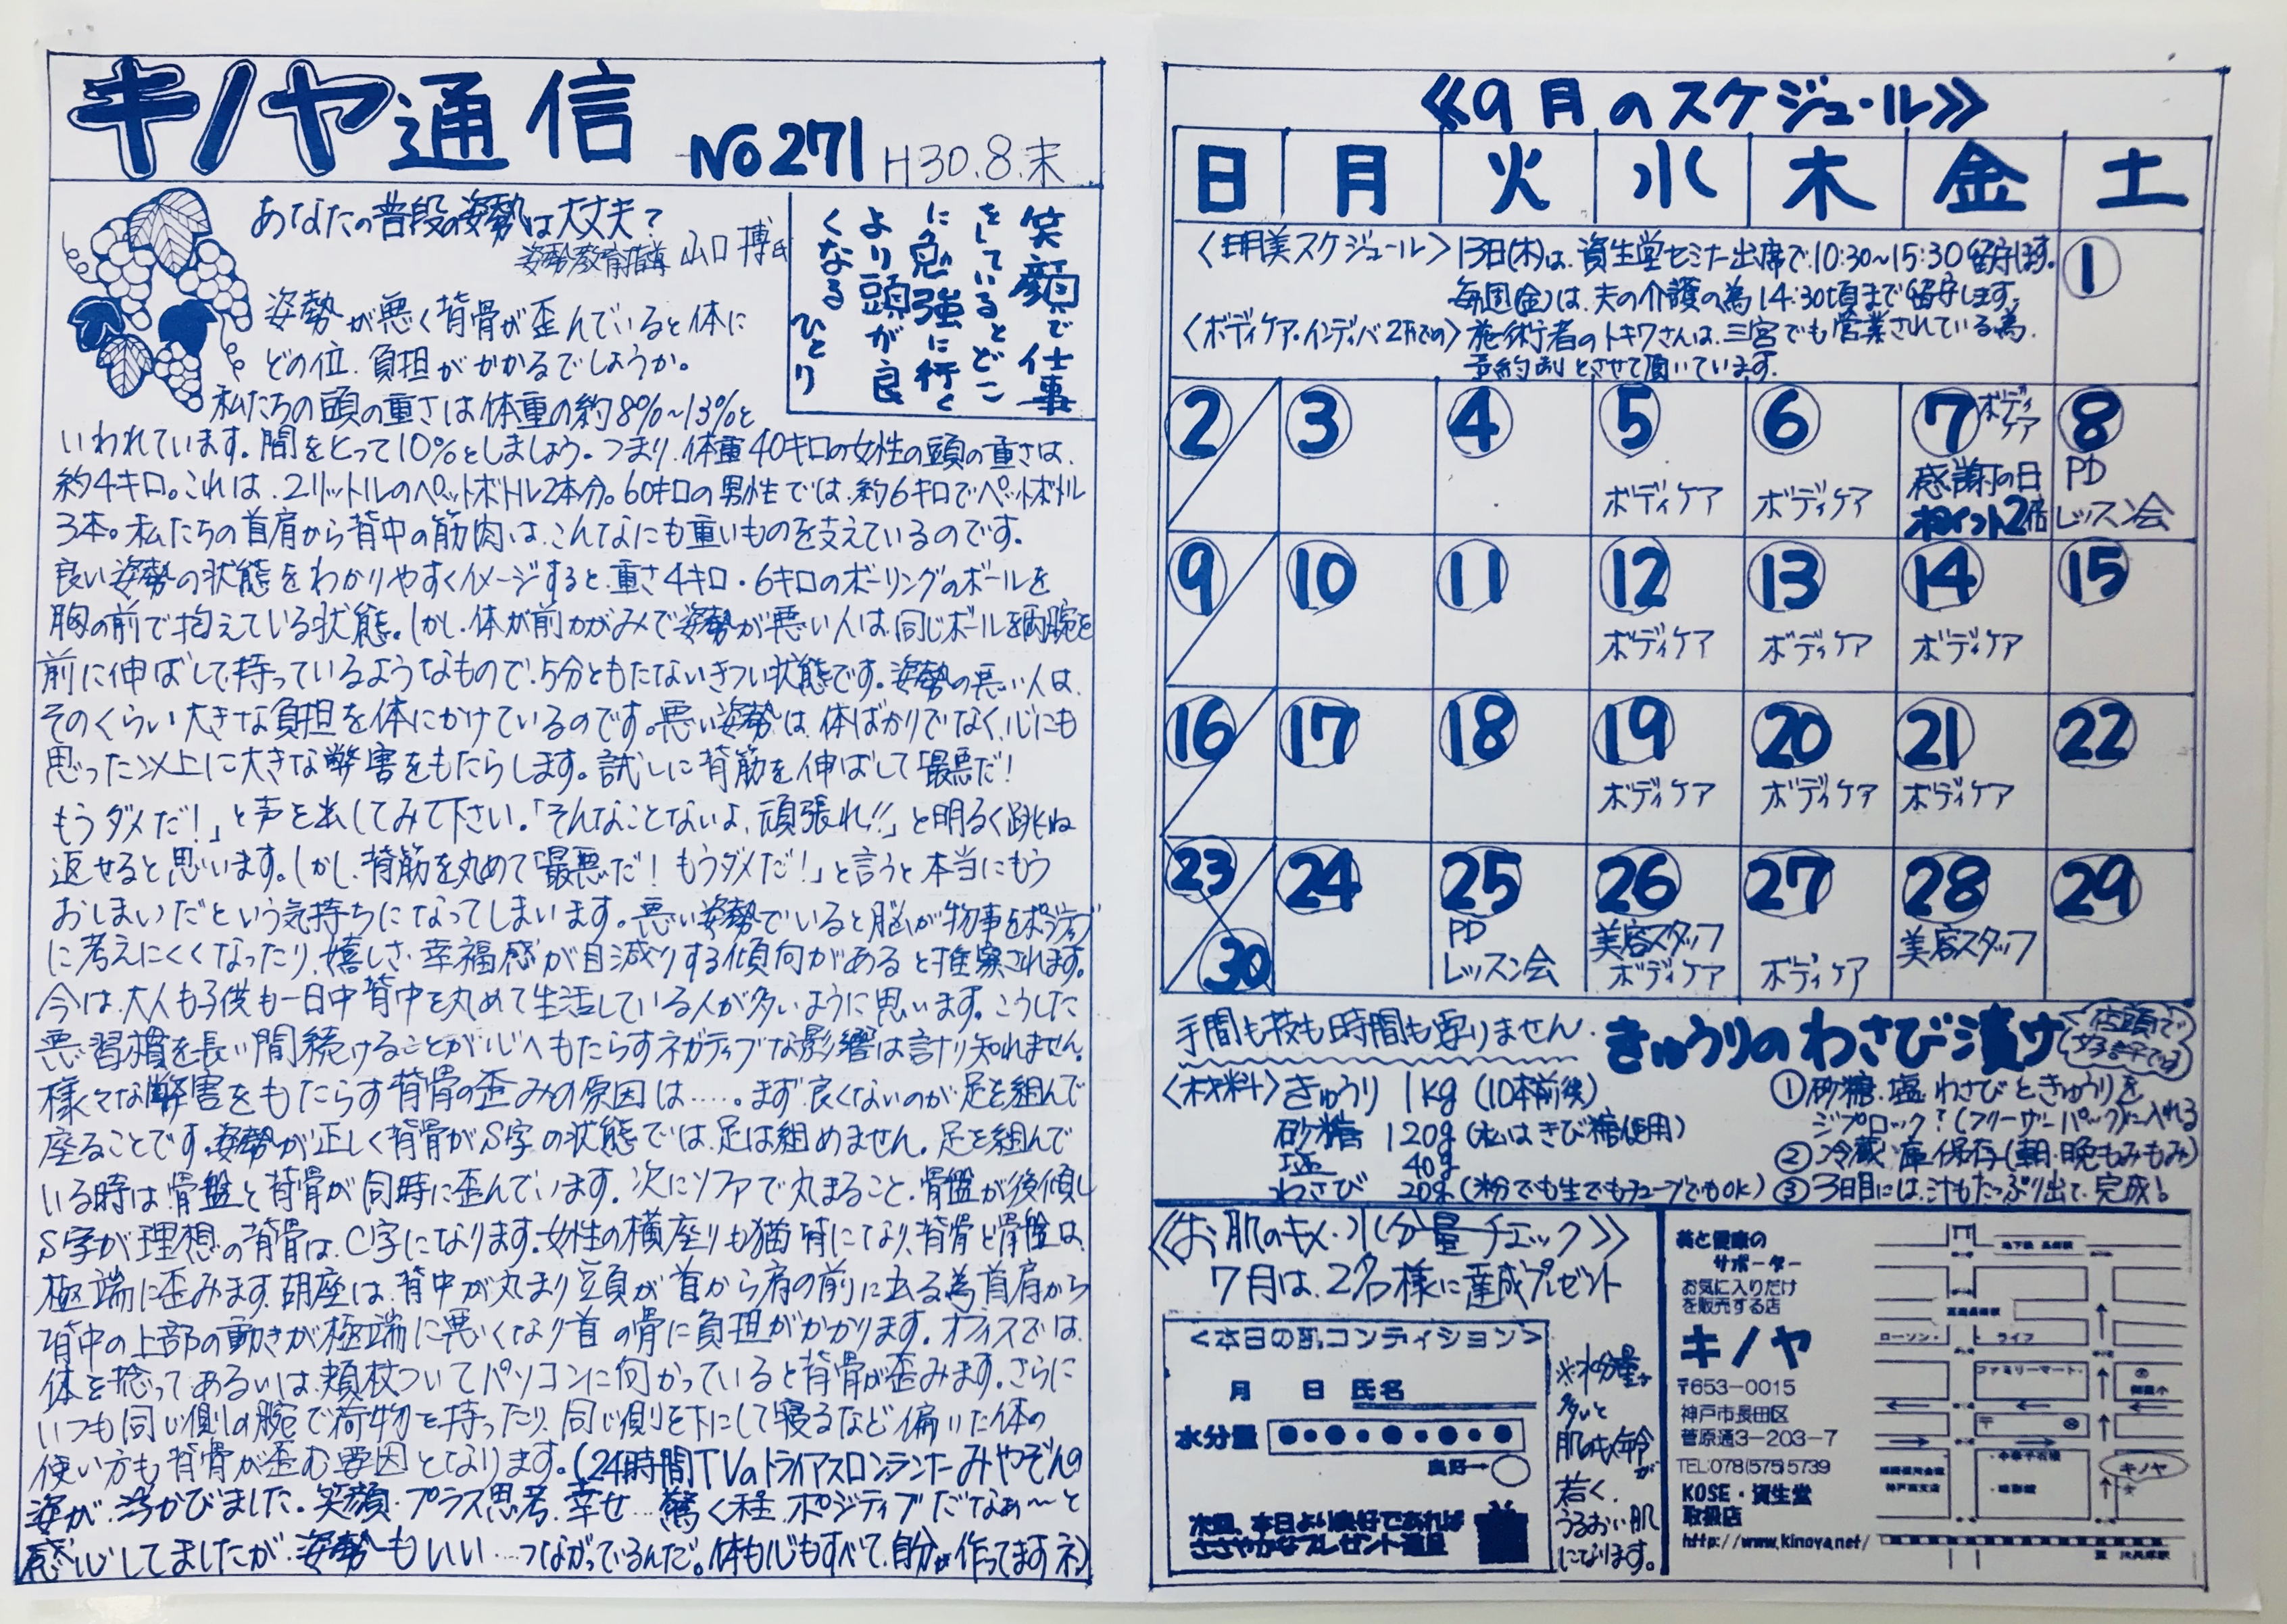 キノヤ通信 No271 H30.8.末
あなたの普段の姿勢は大丈夫?
姿勢教育指導 山口 博氏
笑顔で仕事
をしているとどこ
に勉強に行く
より頭が良
くなる ひとり
姿勢が悪く背骨が歪んでいると体に
どの位、負担がかかるでしょうか。
私たちの頭の重さは体重の約8%~13%と
いわれています。間をとって10%としましょう。つまり、体重40キロの女性の頭の重さは、
約4キロ。これは、2リットルのペットボトル2本分。60キロの男性では、約6キロでペットボトル
3本。私たちの首肩から背中の筋肉は、こんなにも重いものを支えているのです。
良い姿勢の状態をわかりやすくイメージすると、重さ4キロ・6キロのボーリングのボールを
胸の前で抱えている状態。しかし、体が前かがみで姿勢が悪い人は、同じボールを両腕を
前に伸ばして、持っているようなもので、5分ともたないきつい状態です。姿勢の悪い人は、
そのくらい大きな負担を体にかけているのです。悪い姿勢は、体ばかりでなく、心にも
思った以上に大きな弊害をもたらします。試しに背筋を伸ばして「最悪だ!
もうダメだ!」と声を出してみて下さい。「そんなことないよ、頑張れ!!」と明るく跳ね
返せると思います。しかし、背筋を丸めて「最悪だ!もうダメだ!」と言うと本当にもう
おしまいだという気持ちになってしまいます。悪い姿勢でいると脳が物事をポジティブ
に考えにくくなったり、嬉しさ・幸福感が目減りする傾向があると推察されます。
今は、大人も子供も一日中背中を丸めて生活している人が多いように思います。こうした
悪い習慣を長い間続けることが心へもたらすネガティブな影響は計り知れません。
様々な弊害をもたらす背骨の歪みの原因は……。まず、良くないのが足を組んで
座ることです。姿勢が正しく背骨がS字の状態では、足は組めません。足を組んで
いる時は骨盤と背骨が同時に歪んでいます。次にソファで丸まること、骨盤が後傾し
S字が理想の背骨は、C字になります。女性の横座りも猫背になり、背骨と骨盤は、
極端に歪みます。胡座は、背中が丸まり頭が首から肩の前に出る為首肩から
背中の上部の動きが極端に悪くなり首の骨に負担がかかります。オフィスでは、
体を捻ってあるいは、頬杖ついてパソコンに向かっていると背骨が歪みます。さらに
いつも同じ側の腕で荷物を持ったり、同じ側を下にして寝るなど偏った体の
使い方も背骨が歪む要因となります。(24時間TVのトライアスロンランナーみやぞんの
姿が浮かびました。笑顔・プラス思考・幸せ…驚く程、ポジティブだなぁ~と
感心してましたが、姿勢もいい…つながっているんだ。体も心もすべて、自分が作ってますネ)
≪9月のスケジュール≫
日 月 火 水 木 金 土
<明美スケジュール>13日(木)は、資生堂セミナー出席で10:30~15:30留守します。
毎週(金)は、夫の介護の為14:30頃まで留守します。
<ボディケア・インディバ2Fでの>施術者のトキワさんは、三宮でも営業されている為、
予約制とさせて頂いています。
①
② ③ ④ ⑤ ⑥ ⑦ボディケア ⑧
ボディケア ボディケア 感謝の日 ポイント2倍 PD レッスン会
⑨ ⑩ ⑪ ⑫ ⑬ ⑭ ⑮
ボディケア ボディケア ボディケア
⑯ ⑰ ⑱ ⑲ ⑳ ㉑ ㉒
ボディケア ボディケア ボディケア
㉓ ㉔ ㉕ ㉖ ㉗ ㉘ ㉙
㉚ PD レッスン会 美容スタッフ ボディケア ボディケア 美容スタッフ
手間も技も時間も要りません。きゅうりのわさび漬け
店頭で
好評です
<材料>きゅうり 1kg (10本前後)
砂糖 120g (私はきび糖使用)
塩 40g
わさび 20g (粉でも生でもチューブでもOK)
①砂糖、塩、わさびときゅうりを
ジプロック?(フリーザーパック)に入れる
②冷蔵庫保存(朝・晩もみもみ)
③3日目には、汁もたっぷり出て、完成!
≪お肌のキメ・水分量チェック≫
7月は、2名様に達成プレゼント
<本日の肌コンディション>
月 日 氏名
水分量
良好→
次回、本日より良好であれば
ささやかなプレゼント進呈
※水分量が
多いと
肌のキメ年令が
若く、
うるおい肌
になります。
美と健康の
サポーター
お気に入りだけ
を販売する店
キノヤ
〒653-0015
神戸市長田区
菅原通3-203-7
TEL:078(575)5739
KOSE・資生堂
取扱店
http://www.kinoya.net/
地下鉄 長田駅
高速長田駅
ローソン・ ライフ
ファミリーマート・
〒
キノヤ